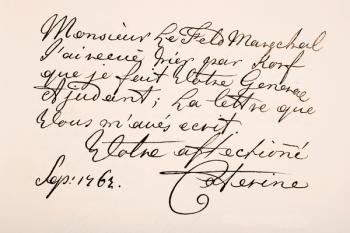 Monsieur Le Feld Marechal
J'ai recuë hier par Korf
que je fait Votre General
Ajudant; La lettre que
Vous m'avés ecrit
Votre affectionné
Sep: 1762. Caterine